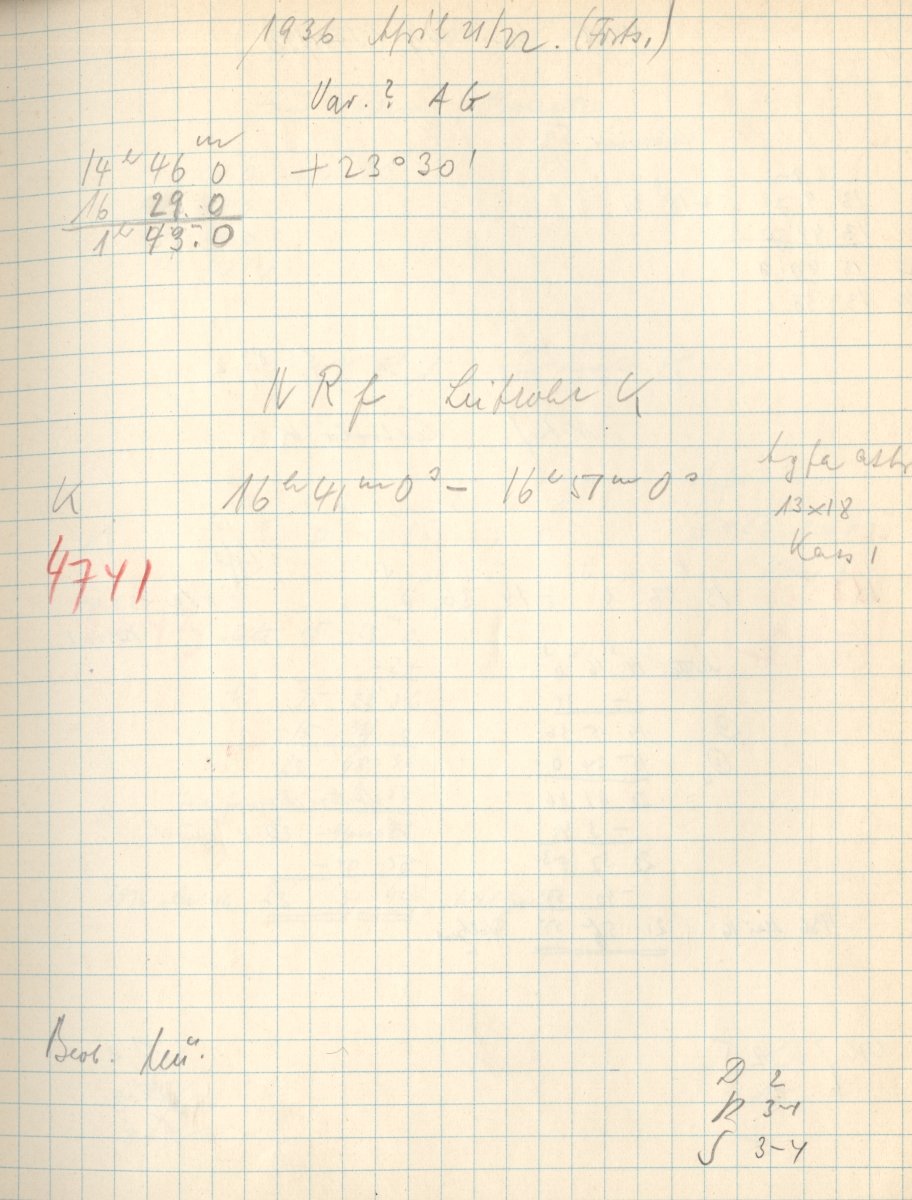 1936 April 21/22. (Forts.)
Var.? AG
14ʰ 46ᵐ 0 +23°30'
16 29. 0
1ʰ 43. 0
N R f Leitrohr K
K 16ʰ41ᵐ0ˢ – 16ʰ57ᵐ0ˢ Agfa astr
13x18
Kass 1
4741
Beob.
D 2
R 3-4
S 3-4